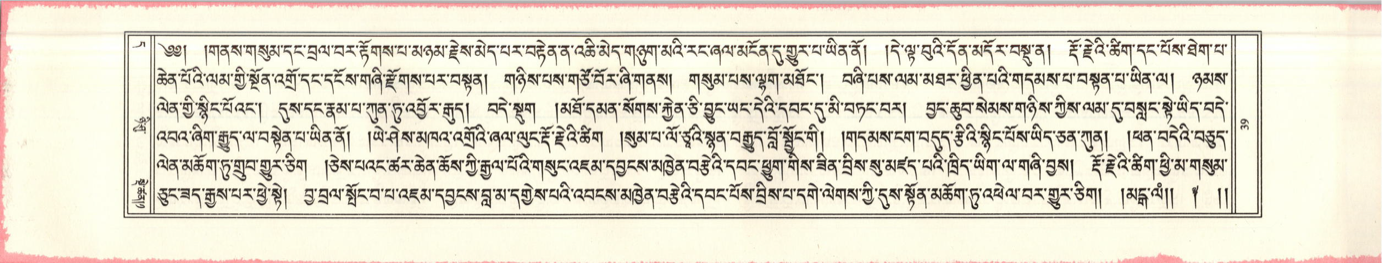 ༄༅། །གནས་གསུམ་དང་བྲལ་བར་རྟོགས་པ་མཉམ་རྗེས་མེད་པར་བརྟེན་ན་འཆི་མེད་གཉུག་མའི་རང་ཞལ་མངོན་དུ་གྱུར་པ་ཡིན་ནོ། །དེ་ལྟ་བུའི་དོན་མདོར་བསྡུ་ན། རྡོ་རྗེའི་ཚིག་དང་པོས་ཐེག་པ་
ཆེན་པོའི་ལམ་གྱི་སྔོན་འགྲོ་དང་དངོས་གཞི་རྫོགས་པར་བསྟན། གཉིས་པས་གཙོ་བོར་ཞི་གནས། གསུམ་པས་ལྷག་མཐོང་། བཞི་པས་ལམ་མཐར་ཕྱིན་པའི་གདམས་པ་བསྟན་པ་ཡིན་ལ། ཉམས་
ལེན་གྱི་སྙིང་པོ་འང་། དུས་དང་རྣམ་པ་ཀུན་ཏུ་འབྱོར་རྒུད། བདེ་སྡུག །མཐོ་དམན་སོགས་རྐྱེན་ཅི་བྱུང་ཡང་དེའི་དབང་དུ་མི་བཏང་བར། བྱང་ཆུབ་སེམས་གཉིས་ཀྱིས་ལམ་དུ་བསླང་སྟེ་ཡིད་བདེ་
འབའ་ཞིག་རྒྱུད་ལ་བསྟེན་པ་ཡིན་ནོ། །ཡེ་ཤེས་མཁའ་འགྲོའི་ཞལ་ལུང་རྡོ་རྗེའི་ཚིག །སུམ་པ་ལོ་ཙཱའི་སྙན་བརྒྱུད་བློ་སྦྱོང་གི། །གདམས་ངག་བདུད་རྩིའི་སྙིང་པོས་ཡིད་ཅན་ཀུན། །ཕན་བདེའི་བཅུད་
ལེན་མཆོག་ཏུ་གྲུབ་གྱུར་ཅིག །ཅེས་པའང་ཚར་ཆེན་ཆོས་ཀྱི་རྒྱལ་པོའི་གསུང་འཇམ་དབྱངས་མཁྱེན་བརྩེའི་དབང་ཕྱུག་གིས་ཟིན་བྲིས་སུ་མཛད་པའི་ཁྲིད་ཡིག་ལ་གཞི་བྱས། རྡོ་རྗེའི་ཚིག་ཕྱི་མ་གསུམ་
ཅུང་ཟད་རྒྱས་པར་ཕྱེ་སྟེ། བྱ་བྲལ་སྤོང་བ་པ་འཇམ་དབྱངས་བླ་མ་དགྱེས་པའི་འབངས་མཁྱེན་བརྩེའི་དབང་པོས་བྲིས་པ་དགེ་ལེགས་ཀྱི་དུས་སྟོན་མཆོག་ཏུ་འཕེལ་བར་གྱུར་ཅིག། །མངྒ་ལཾ།། །།
39